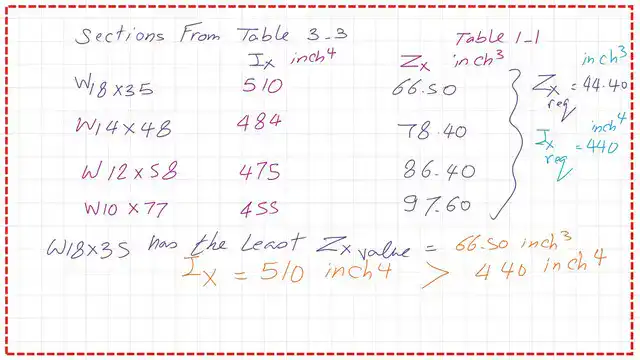 Sections From Table 3-3 Table 1-1
Ix inch4 Zx inch3
W18x35 510 66.50
W14x48 484 78.40
W12x58 475 86.40
W10x77 455 97.60
inch3
Zx req = 44.40
inch4
Ix req = 440
W18x35 has the Least Zx value = 66.50 inch3
Ix = 510 inch4 > 440 inch4